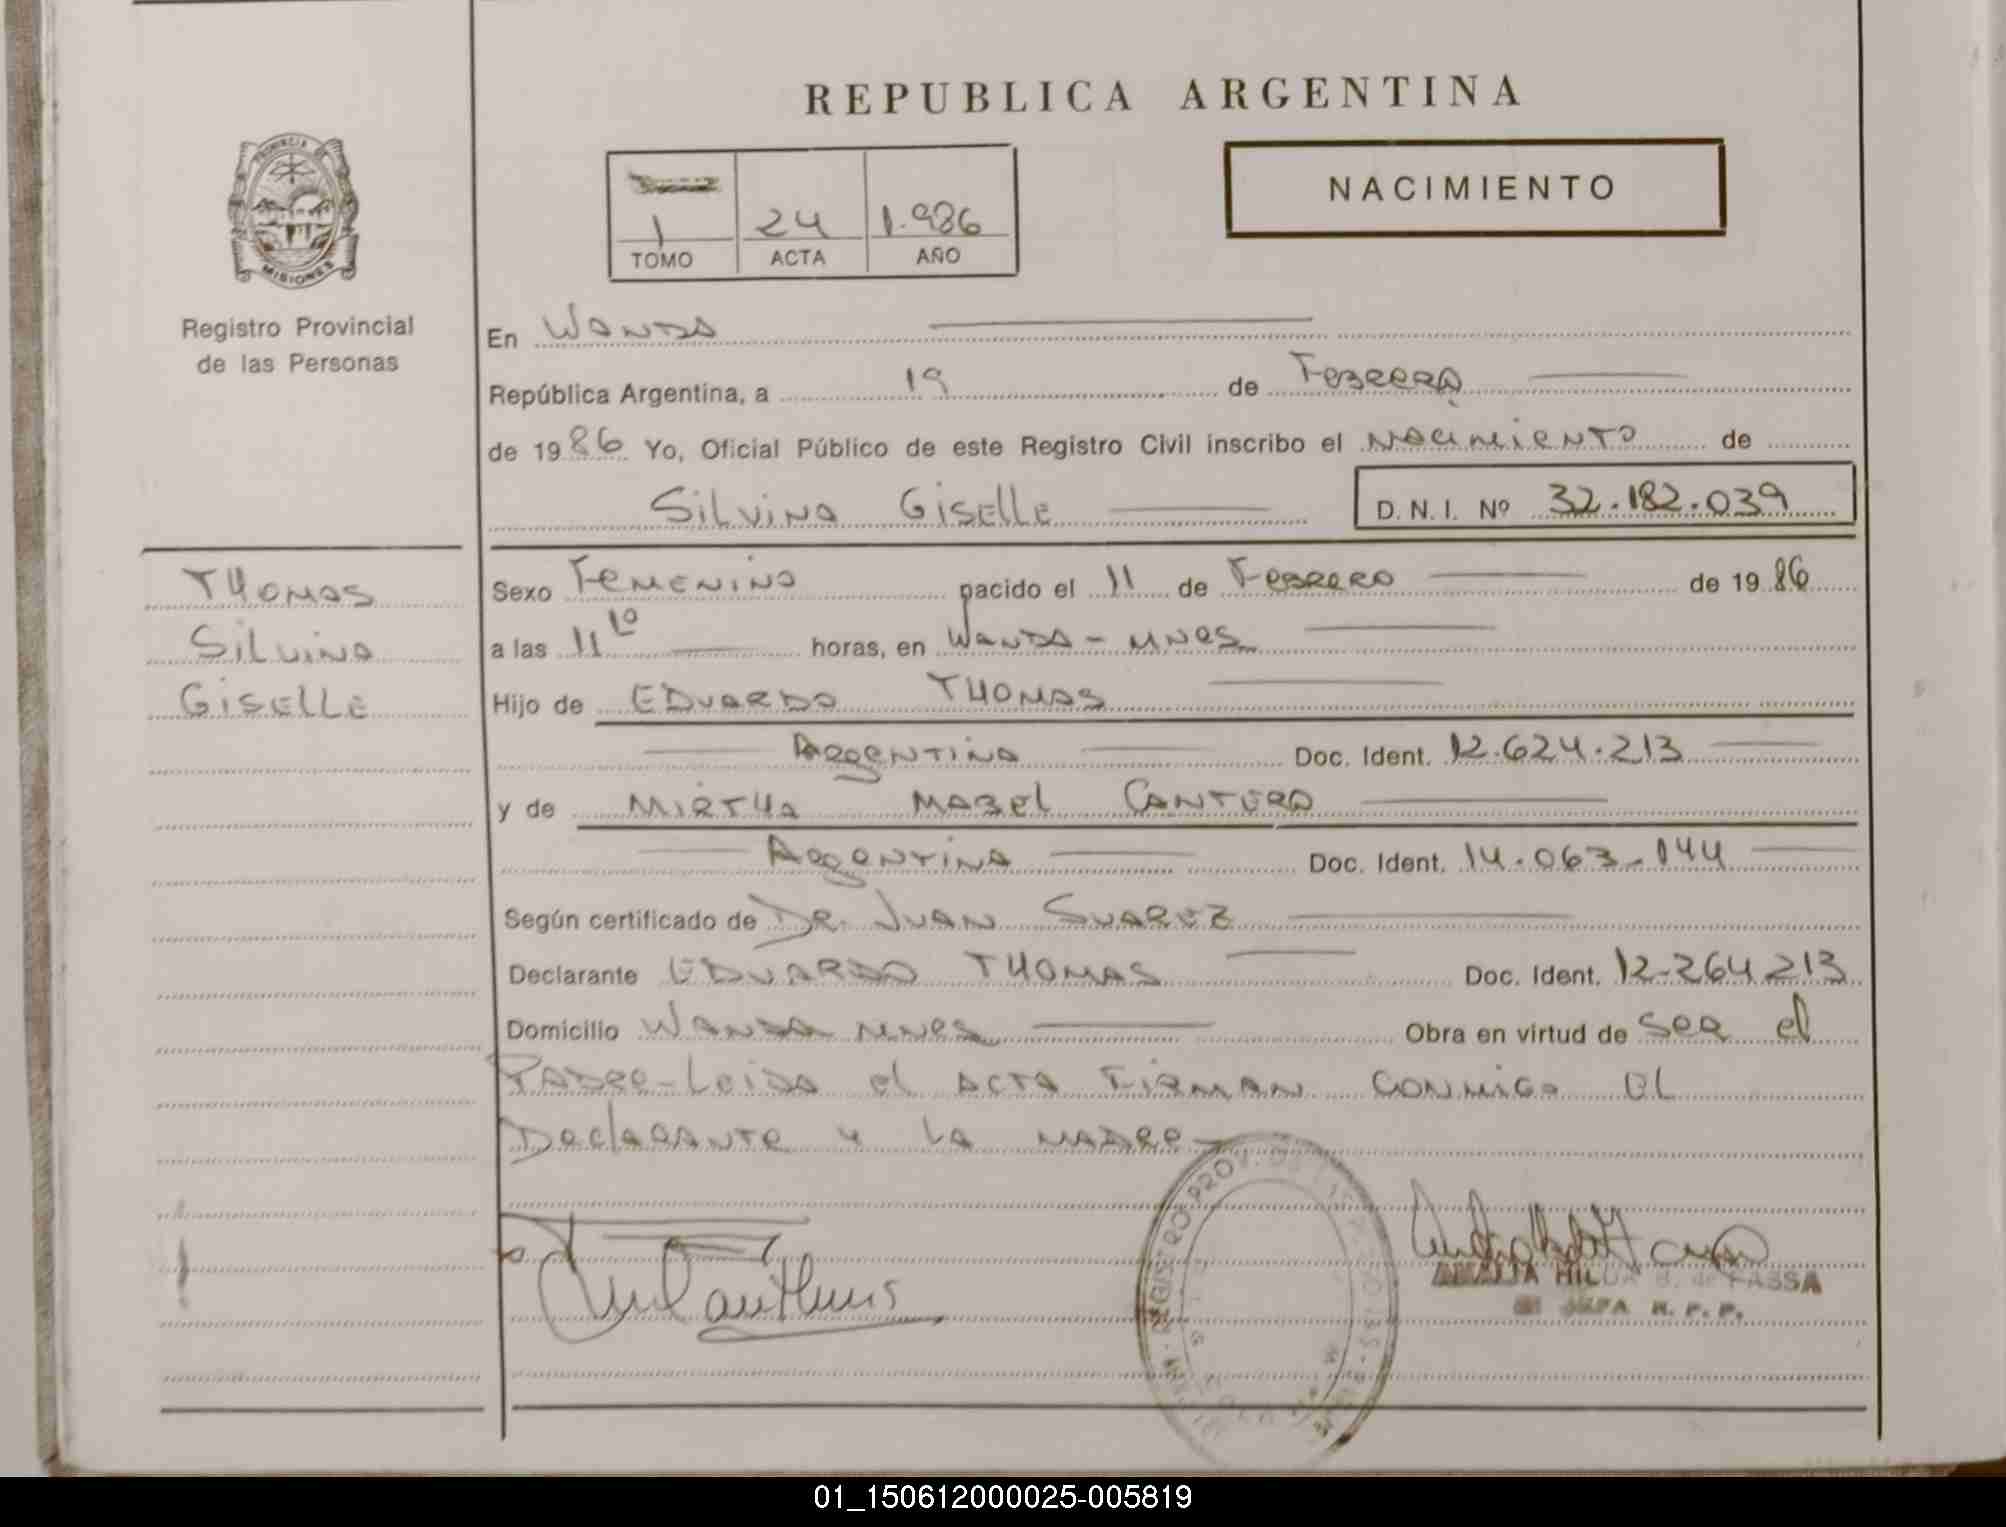 REPUBLICA ARGENTINA
PROVINCIA DE
MISIONES
Registro Provincial
de las Personas
1 24 1.986
TOMO ACTA AÑO
NACIMIENTO
En Wanda
República Argentina, a 19 de Febrero
de 1986 Yo, Oficial Público de este Registro Civil inscribo el Nacimiento de
Silvina Giselle D.N.I. Nº 32.182.039
Thomas
Silvina
Giselle
Sexo Femenino nacido el 11 de Febrero de 1986
a las 11 10 horas, en Wanda - Mnes
Hijo de Eduardo Thomas
Argentina Doc. Ident. 12.624.213
y de Mirtha Mabel Cantero
Argentina Doc. Ident. 14.063.144
Según certificado de Dr. Juan Suarez
Declarante Eduardo Thomas Doc. Ident. 12-264.213
Domicilio Wanda Mnes Obra en virtud de ser el
Padre - Leida el acta firman conmigo el
Declarante y la madre -
REGISTRO PROV. DE
AMALIA HILDA B. de FASSA
JEFA R. P. P.
01_150612000025-005819